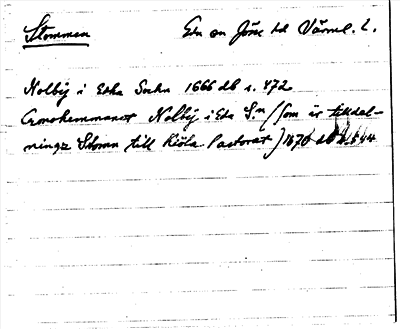 Stommen Eda sn Jösse hd Värml. l.
Nolbÿ i Edha Sochn 1666 db s. 472
Cronohemmanet Nolbÿ i Eda Sn (som är tilldel-
ningz Stomn till Kiöla Pastorat) 1670 db s. 544